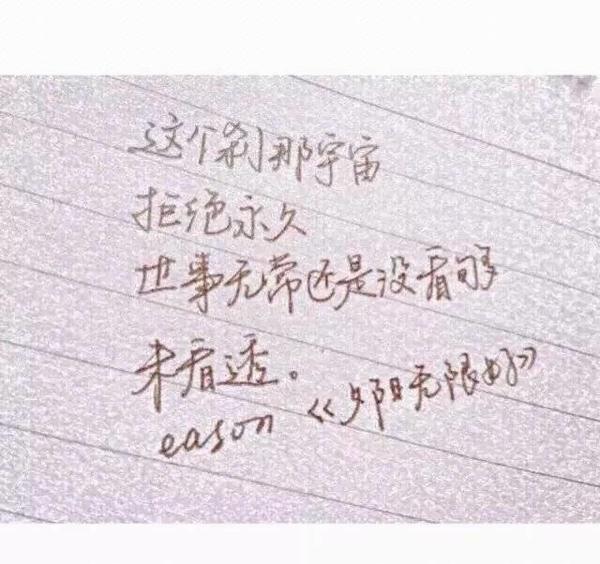 这个刹那宇宙
拒绝永久
世事无常还是没看够
未看透。
eason《夕阳无限好》